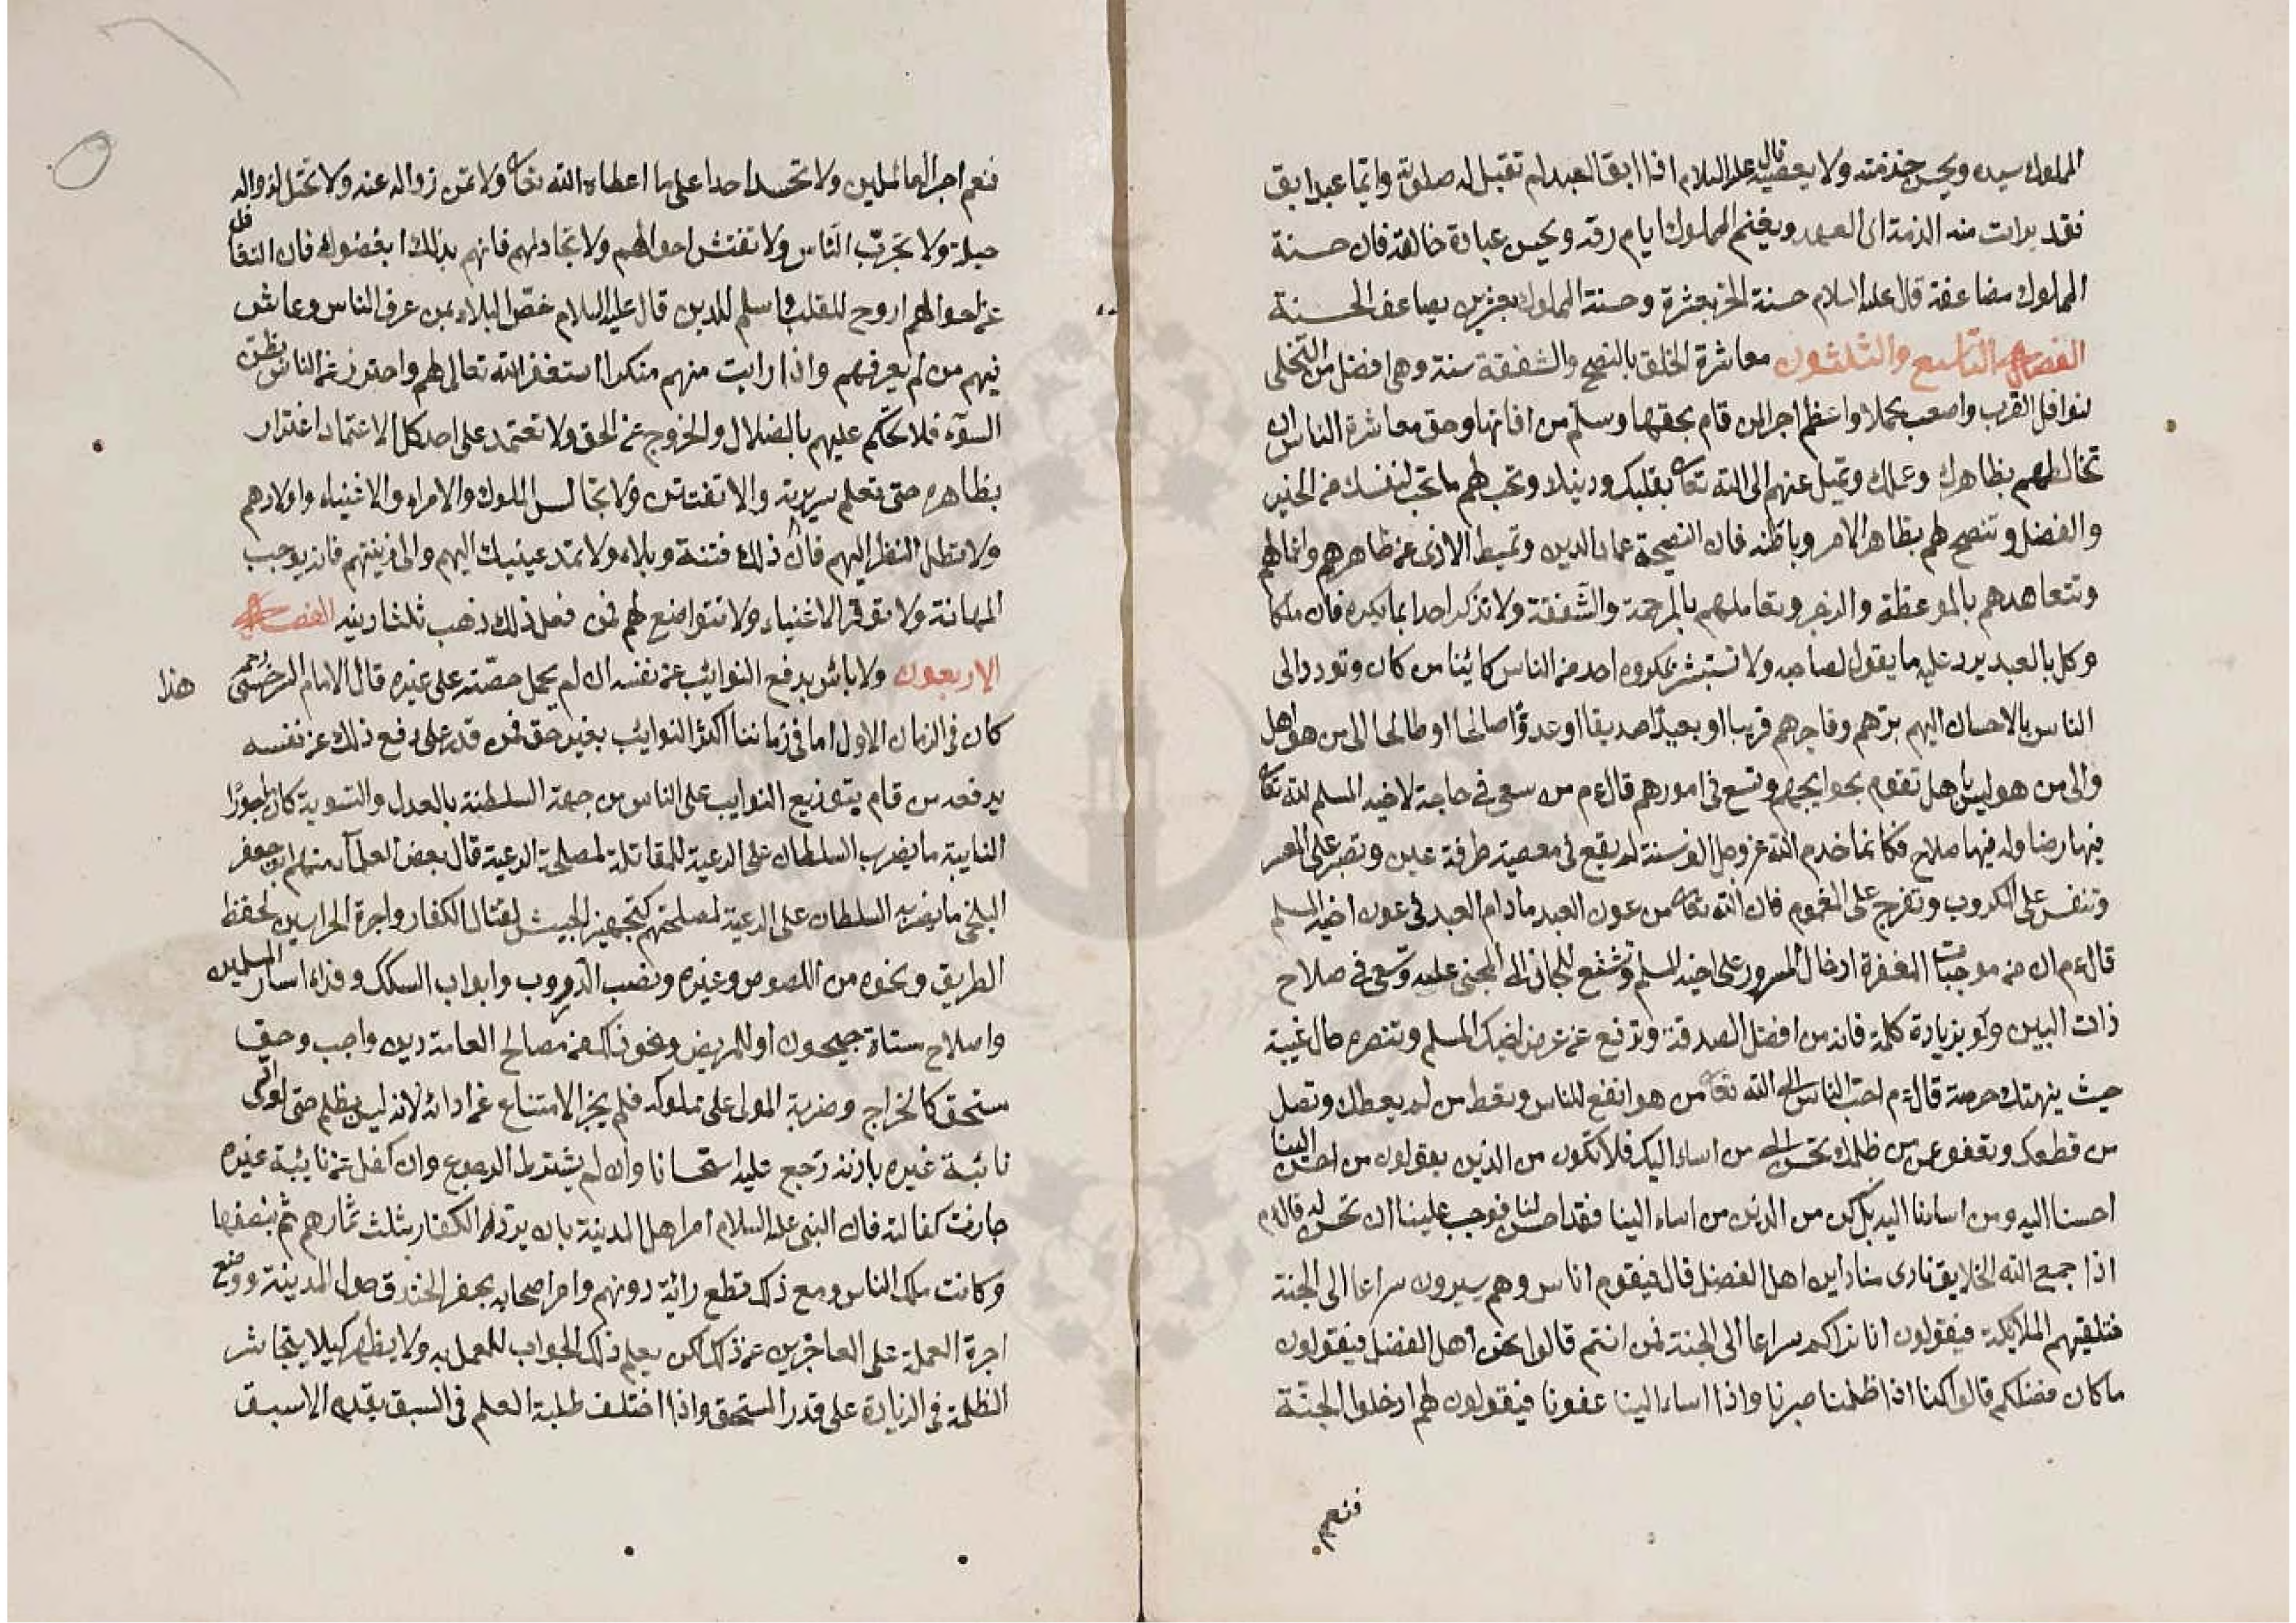 المملوك سيده ويحسن خدمته ولا يعصيه قال عليه السلام اذا ابق العبد لم تقبل له صلوة وايما عبد ابق
فقد برات منه الذمة الى العهد ويغنم المملوك ايام رقه ويحسن عبادة خالقه فان حسنة
المملوك مضاعفة قال عليه السلام حسنة الحر بعشرة وحسنة المملوك بعشرين يضاعف الحسنة
الفصل التاسع والثلثون معاشرة الخلق بالنصح والشفقة سنة وهي افضل من التخلي
لنوافل القرب واصعب محملا واعظم اجرا لمن قام بحقها وسلم من افاتها وحق معاشرة الناس ان
تخالطهم بظاهرك وعملك وتميل عنهم الى الله تعا بقلبك ودينك وتحب لهم ما تحب لنفسك من الخير
والفضل وتنصح لهم بظاهر الامر وباطنه فان النصيحة عماد الدين وتميط الاذى عن ظاهرهم
وتتعاهدهم بالموعظة والزجر وتعاملهم بالمرحمة والشفقة ولا تذكر احدا بما يكره فان ملكا
وكل بالعبد يرد عليه ما يقول لصاحبه ولا تستبشر بمكروه احد من الناس كائنا من كان وتودد الى
الناس بالاحسان اليهم برهم وفاجرهم قريبا او بعيدا صديقا او عدوا صالحا او طالحا الى من هو اهل
والى من هو ليس باهل تقوم بحوايجهم وتسع في امورهم قال ءم من سعى في حاجة لاخيه المسلم لله تعا
فيها رضا وله فيها صلاح فكانما خدم الله عز وجل الف سنة لم يقع في معصية طرفة عين وتصبر على المعسر
وتنفس على المكروب وتفرج على المغموم فان الله تعا من عون العبد ما دام العبد في عون اخيه المسلم
قال ءم ان من موجبات المغفرة ادخال السرور على اخيه المسلم وتشفع للجاني الى المجني عليه وتسعى في صلاح
ذات البين ولو بزيادة كلمة فانه من افضل الصدقة وترفع عن عرض اخيك المسلم وتنصره حال غيبة
حيث ينهتك حرمة قال ءم احب الناس الى الله تعا من هو انفع للناس وتعط من لم يعطك وتصل
من قطعك وتعفو عمن ظلمك وتحسن الى من اساء اليك فلا تكون من الذين يقولون من احسن الينا
احسنا اليه ومن اسانا اليه بل كن من الذين من اساء الينا فقد احسن لنا فوجب علينا ان نحسن له قال ءم
اذا جمع الله الخلايق نادى مناد اين اهل الفضل قال فيقوم اناس وهم يسيرون سراعا الى الجنة
فتلقيهم الملائكة فيقولون انا نراكم سراعا الى الجنة فمن انتم قالوا نحن اهل الفضل فيقولون
ما كان فضلكم قالوا كنا اذا ظلمنا صبرنا واذا اساء الينا عفونا فيقولون لهم ادخلوا الجنة
فنعم
فنعم اجر العاملين ولا تحسد احدا على ما اعطاه الله تعا ولا تمن زواله عنه ولا تحتل لزواله
حيلة ولا تجرب الناس ولا تفتش احوالهم ولا تجادلهم فانهم بذلك ابغضوك فان التغافل
عن احوالهم اروح للقلب واسلم للدين قال عليه السلام خص البلاء بمن عرف الناس وعاش
فيهم من لم يعرفهم واذا رايت منهم منكرا استغفر الله تعالى لهم واحترز عن الناس بظن
السوء فلا تحكم عليهم بالضلال والخروج عن الحق ولا تعتمد على احد كل الاعتماد اغترار
بظاهره حتى تعلم سريرته والا تفتتن ولا تجالس الملوك والامراء والاغنياء واولادهم
ولا تطل النظر اليهم فان ذلك فتنة وبلاء ولا تمد عينيك اليهم والى زينتهم فانه يوجب
المهانة ولا توقر الاغنياء ولا تتواضع لهم فمن فعل ذلك ذهب ثلثا دينه الفصل
الاربعون ولا باس بدفع النوائب عن نفسه ان لم يحمل حصته على غيره قال الامام السرخسي رحم هذا
كان في الزمان الاول اما في زماننا اكثر النوائب بغير حق فمن قدر على دفع ذلك عن نفسه
يدفعه من قام بتوزيع النوايب على الناس من جهة السلطنة بالعدل والتسوية كان ماجورا
النايبة ما يضرب السلطان على الرعية للمقاتلة لمصلحة الرعية قال بعض العلماء منهم ابو جعفر
البلخي ما يضربه السلطان على الرعية لمصلحتهم كتجهيز الجيش لقتال الكفار واجرة الحراسين لحفظ
الطريق ونحوه من اللصوص وغيره ونصب الدروب وابواب السكك وفداء اسار المسلمين
واصلاح مسناة جيحون او للمريض ونحو ذلك من مصالح العامة دين واجب وحق
مستحق كالخراج وضربة المولى على مملوكه فلم يجز الامتناع عن ادائه لانه ليس بظلم حتى لو ادى
نائبة غيره باذنه رجع عليه استحسانا وان لم يشترط الرجوع وان كفل عن نائبة غيره
جازت كفالته فان النبي عليه السلام امر اهل المدينة بان يرد الكفار بثلث ثمارهم ثم بنصفها
وكانت ملك الناس ومع ذلك قطع رائه دونهم وامر اصحابه بحفر الخندق حول المدينة ووضع
اجرة العملة على العاجزين عن ذلك لكن يعلم ذلك الجواب للعمل به ولا يظهر كيلا يتجاسر
الظلمة في الزيادة على قدر المستحق واذا اختلف طلبة العلم في السبق يقدم الاسبق